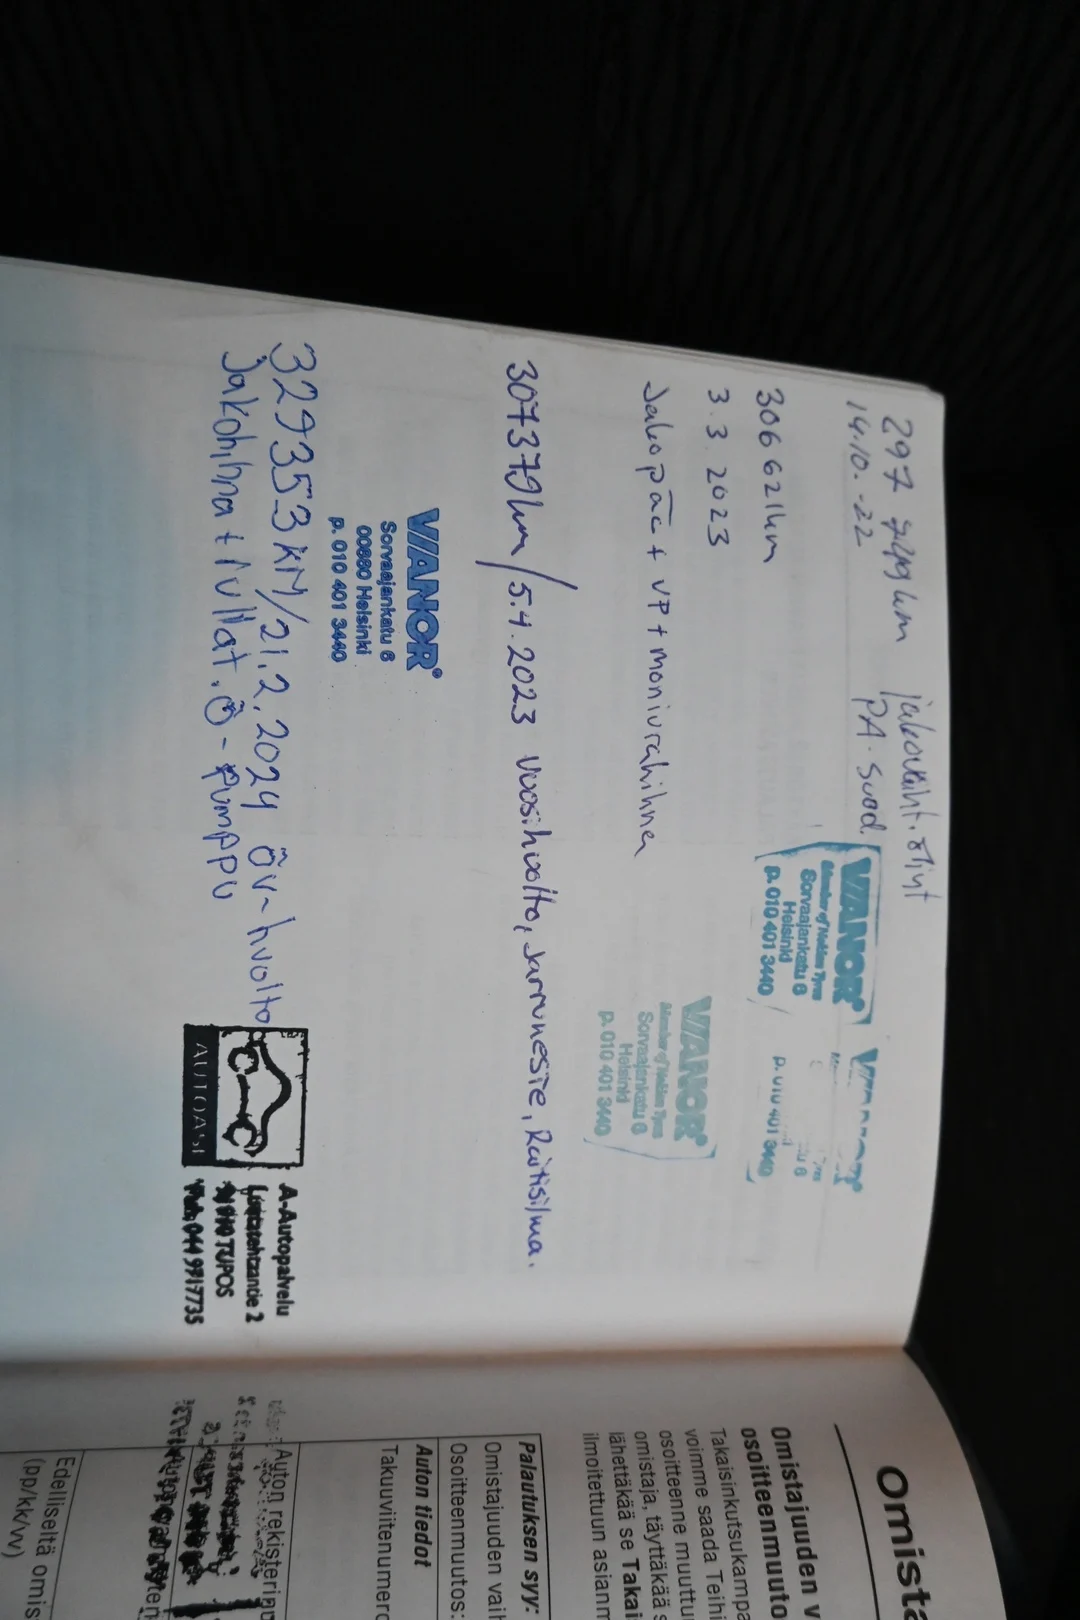 297 km jakovaiht. öljyt
14.10.-22 PA. suod.
VIANOR
Member of Nokian Tyres
Sorvaajankatu 6
Helsinki
p. 010 401 3440
p. 010 401 3440
306621km
3.3.2023
Jakopää + VP + moniurahihna
VIANOR
Member of Nokian Tyres
Sorvaajankatu 6
Helsinki
p. 010 401 3440
307379km/5.4.2023 vuosihuolto, Jarruneste, Raitisilma.
VIANOR
Sorvaajankatu 6
00880 Helsinki
p. 010 401 3440
329353 KM/21.2.2024 öv-huolto
Jakohihna + rullat. - Pumppu
AUTOASI
A-Autopalvelu
2
TUPOS
Puh. 044 9817735
Omista
Omistajuuden v
osoitteenmuuto
Takaisinkutsukampa
voimme saada Teihi
osoitteenne muuttu
omistaja, täyttäkää s
lähettäkää se Takai
ilmoitettuun asianm
Palautuksen syy:
Omistajuuden vaih
Osoitteenmuutos:
Auton tiedot
Takuuviitenumero
Auton rekisterip
Edelliseltä omis
(pp/kk/vv)